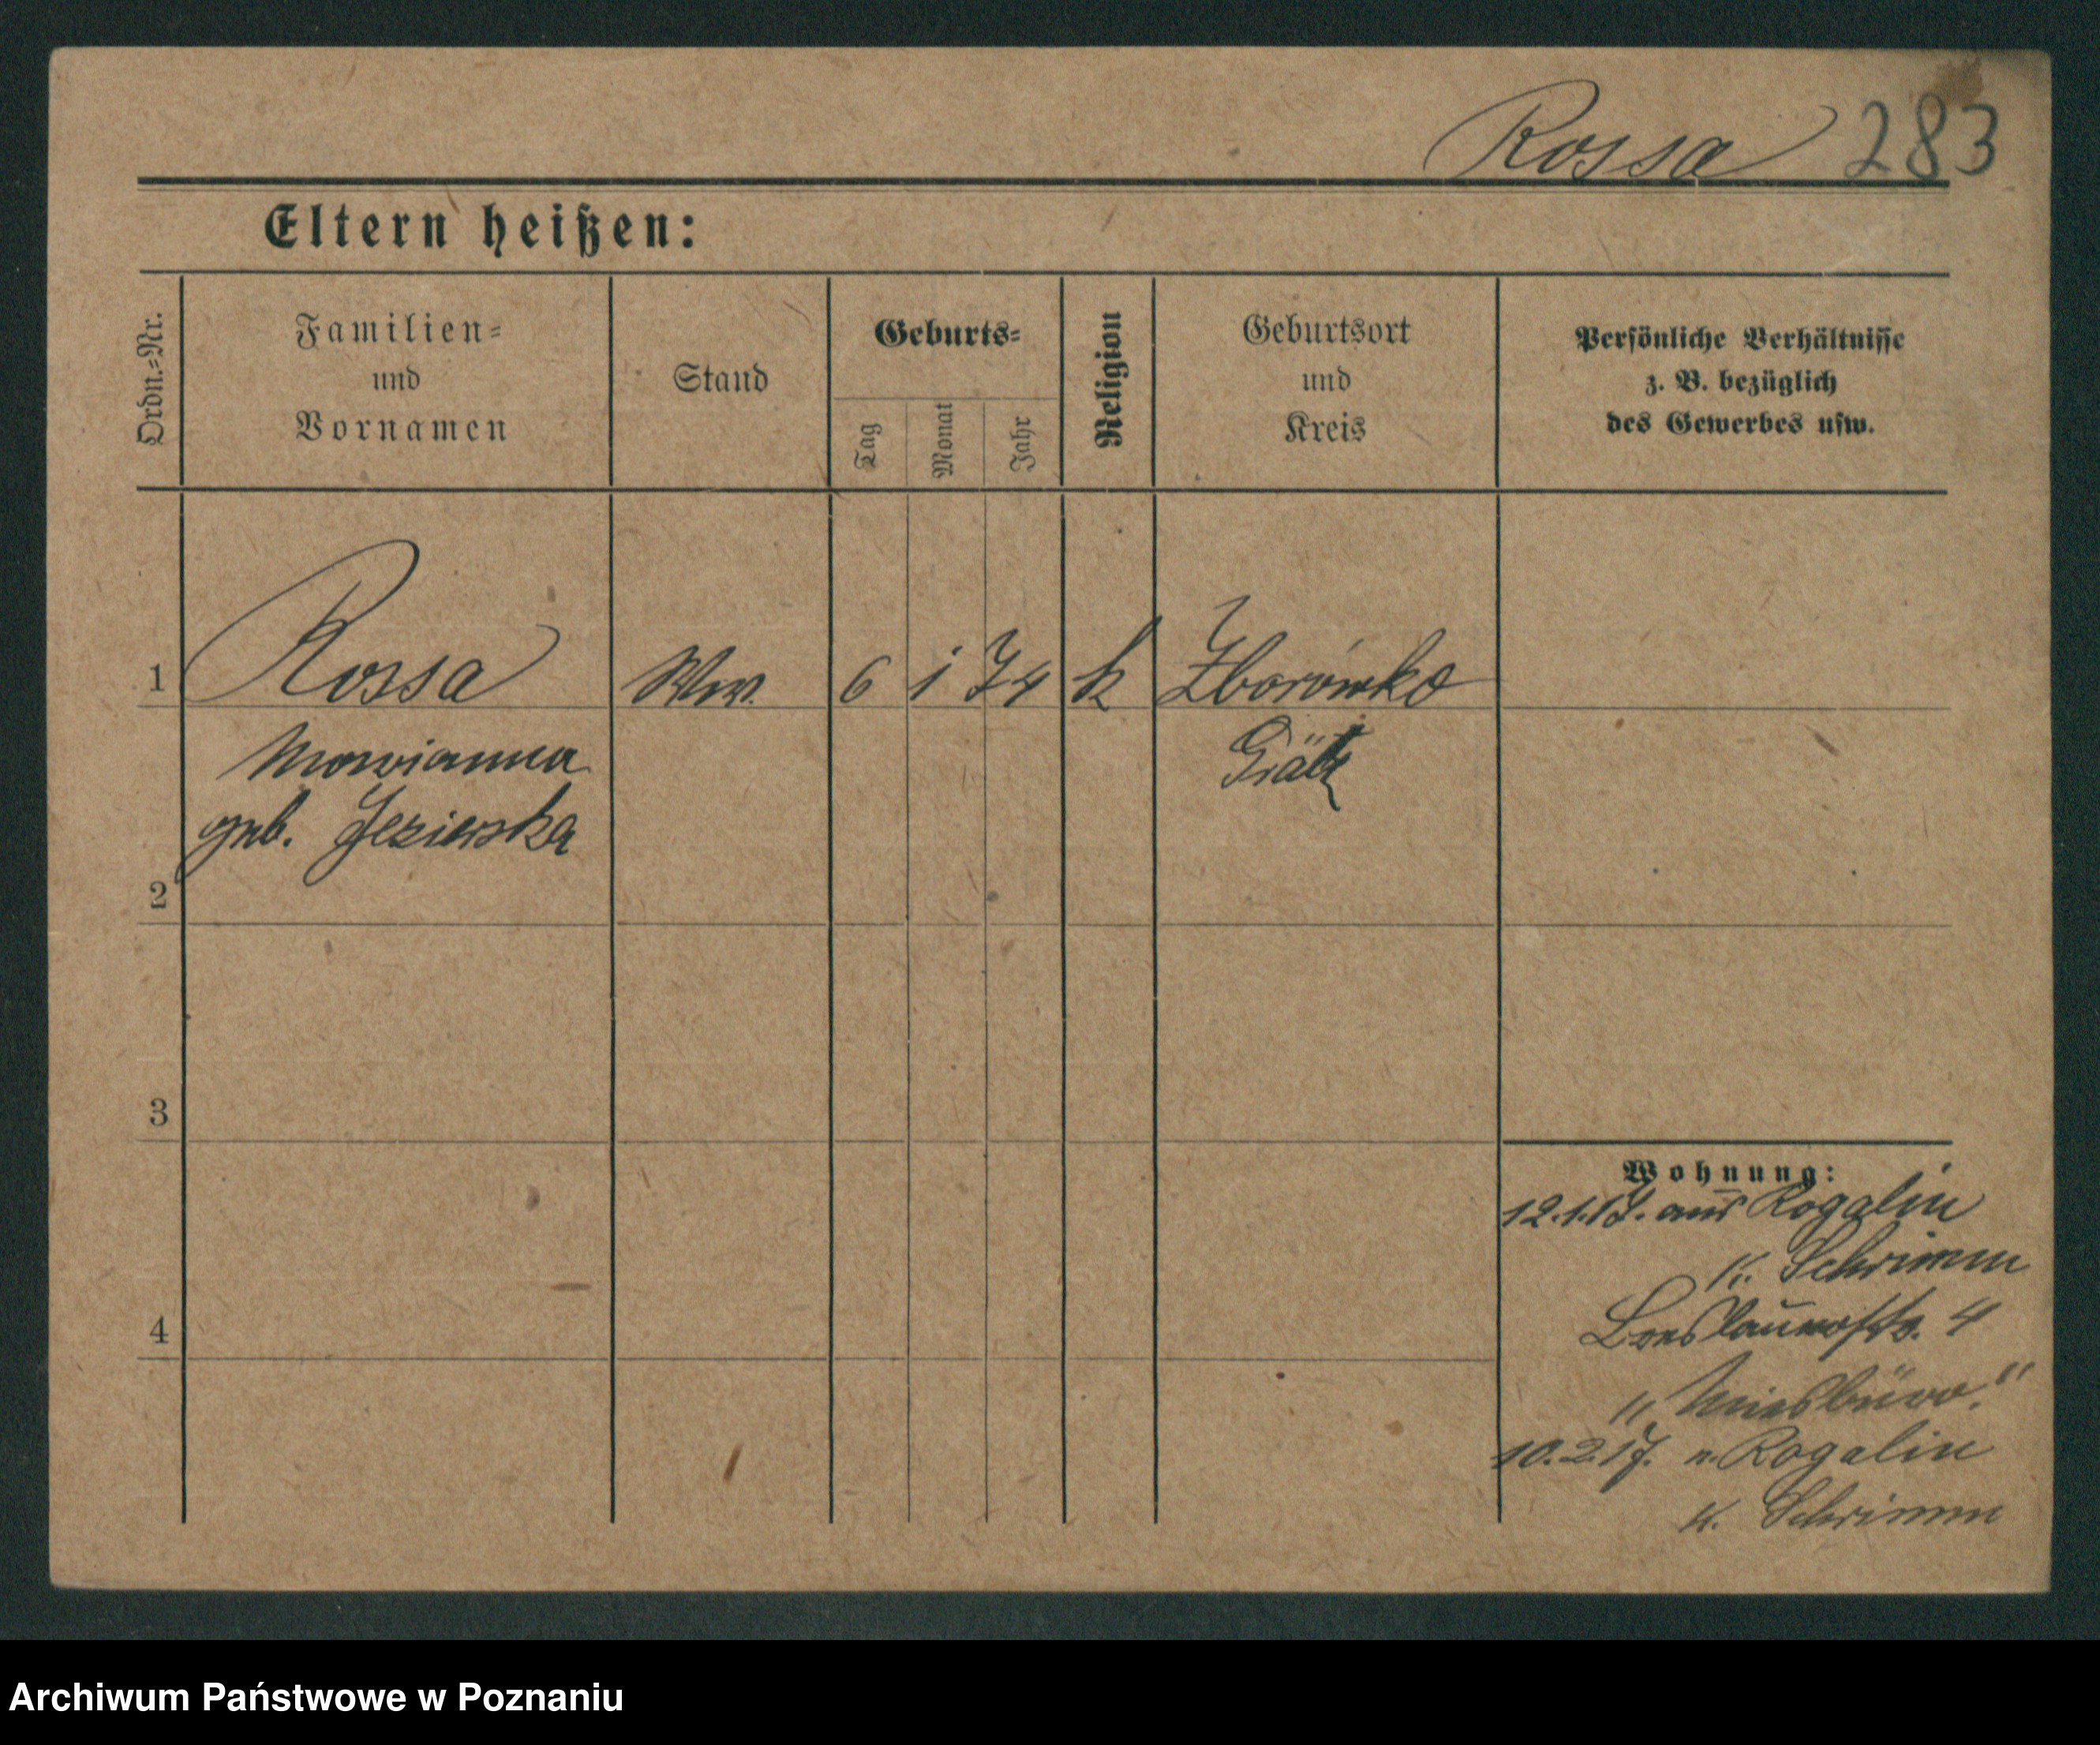 Rossa 283
Eltern heißen:
Ordn.=Nr.
Familien=
und
Vornamen
Stand
Geburts=
Tag
Monat
Jahr
Religion
Geburtsort
und
Kreis
Persönliche Verhältnisse
z. B. bezüglich
des Gewerbes usw.
1 Rossa Ww. 6 1 74 k Zborówko
Marianna Grätz
geb. Jezierska
2
3
4
Wohnung:
12.1.17. aus Rogalin
K. Schrimm
Breslauerstr. 4
10.2.17. n. Rogalin
K. Schrimm
Archiwum Państwowe w Poznaniu